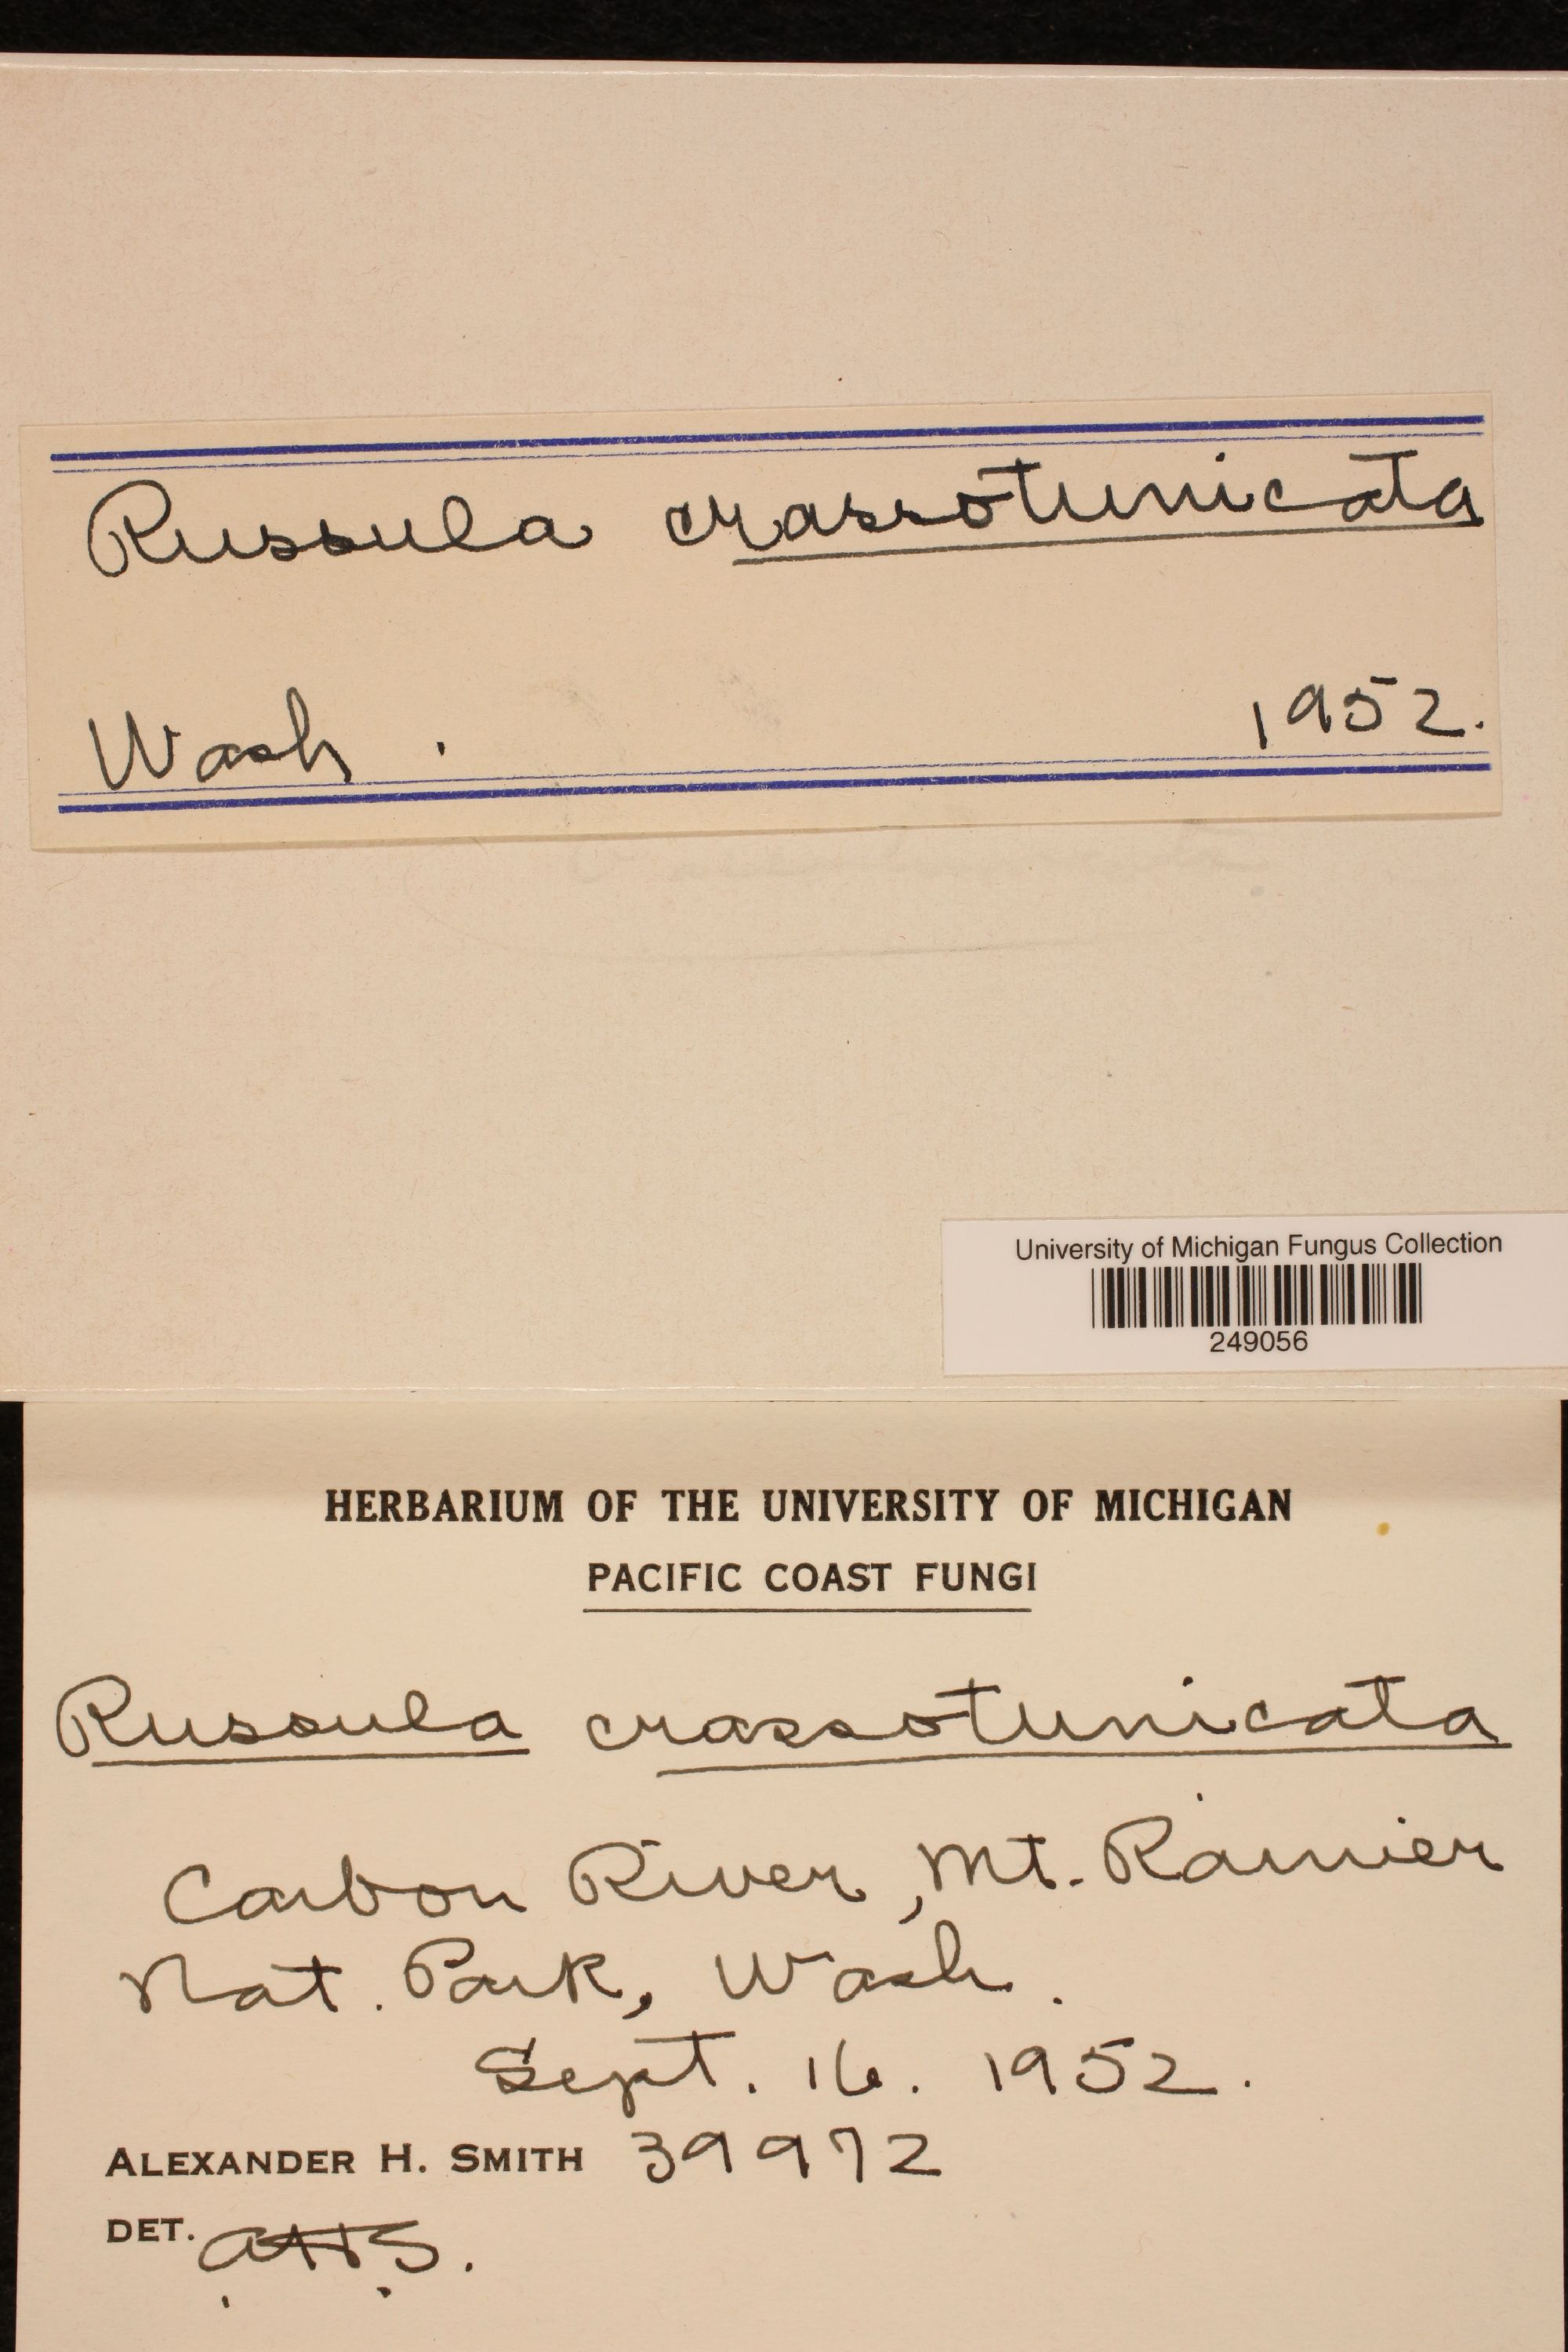 Russula crassotunicata
Wash. 1952.
University of Michigan Fungus Collection
249056
HERBARIUM OF THE UNIVERSITY OF MICHIGAN
PACIFIC COAST FUNGI
Russula crassotunicata
Carbon River, Mt. Rainier
Nat. Park, Wash.
Sept. 16. 1952.
ALEXANDER H. SMITH 39972
DET. AHS.